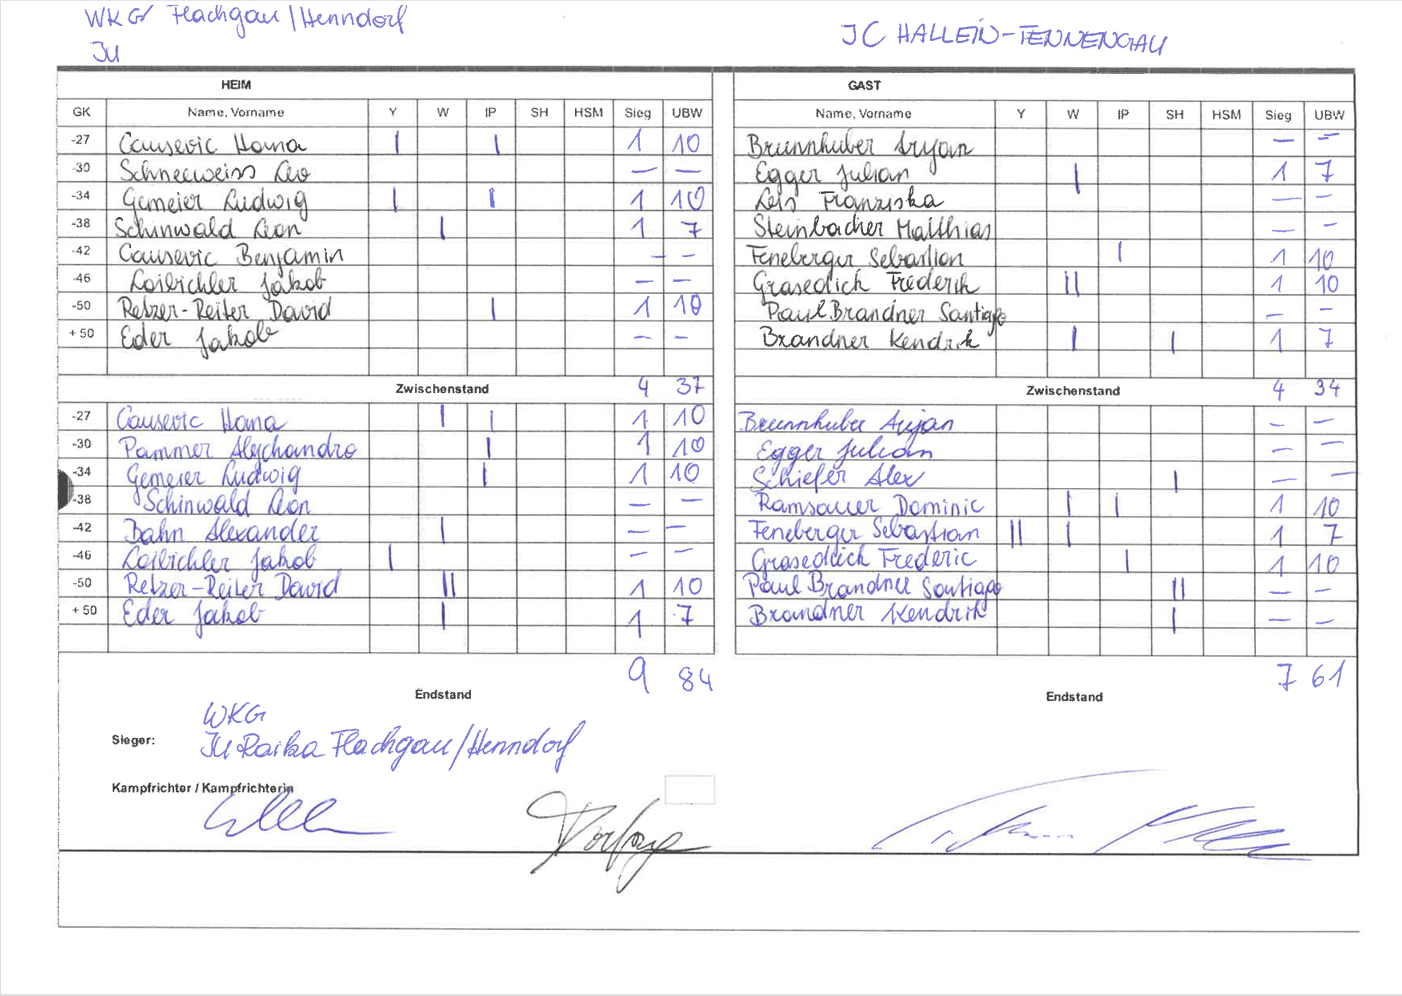 WKG Flachgau/Henndorf
JU
JC HALLEIN-TENNENGAU
HEIM GAST
GK Name, Vorname Y W IP SH HSM Sieg UBW Name, Vorname Y W IP SH HSM Sieg UBW
-27 Causevic Hana | | 1 10 Brunnhuber Arjan — —
-30 Schneeweiss Leo — — Egger Julian | 1 7
-34 Gemeier Ludwig | | 1 10 Leis Franziska — —
-38 Schinwald Leon | 1 7 Steinbacher Matthias — —
-42 Causevic Benjamin — — Feneberger Sebastian | 1 10
-46 Loibichler Jakob — — Grasedieck Frederik || 1 10
-50 Retzer-Reiter David | 1 10 Paul Brandner Santiago — —
+50 Eder Jakob — — Brandner Kendrik | | 1 7
Zwischenstand 4 37 Zwischenstand 4 34
-27 Causevic Hana | | 1 10 Brunnhuber Arjan — —
-30 Pammer Alejchandro | 1 10 Egger Julian — —
-34 Gemeier Ludwig | 1 10 Schiefer Alex | — —
-38 Schinwald Leon — — Ramsauer Dominic | | 1 10
-42 Bahn Alexander | — — Feneberger Sebastian || | 1 7
-46 Loibichler Jakob | — — Grasedieck Frederic | 1 10
-50 Retzer-Reiter David || 1 10 Paul Brandner Santiago || — —
+50 Eder Jakob | 1 7 Brandner Kendrik | — —
9 84 7 61
Endstand Endstand
WKG
Sieger: JU Raika Flachgau/Henndorf
Kampfrichter / Kampfrichterin